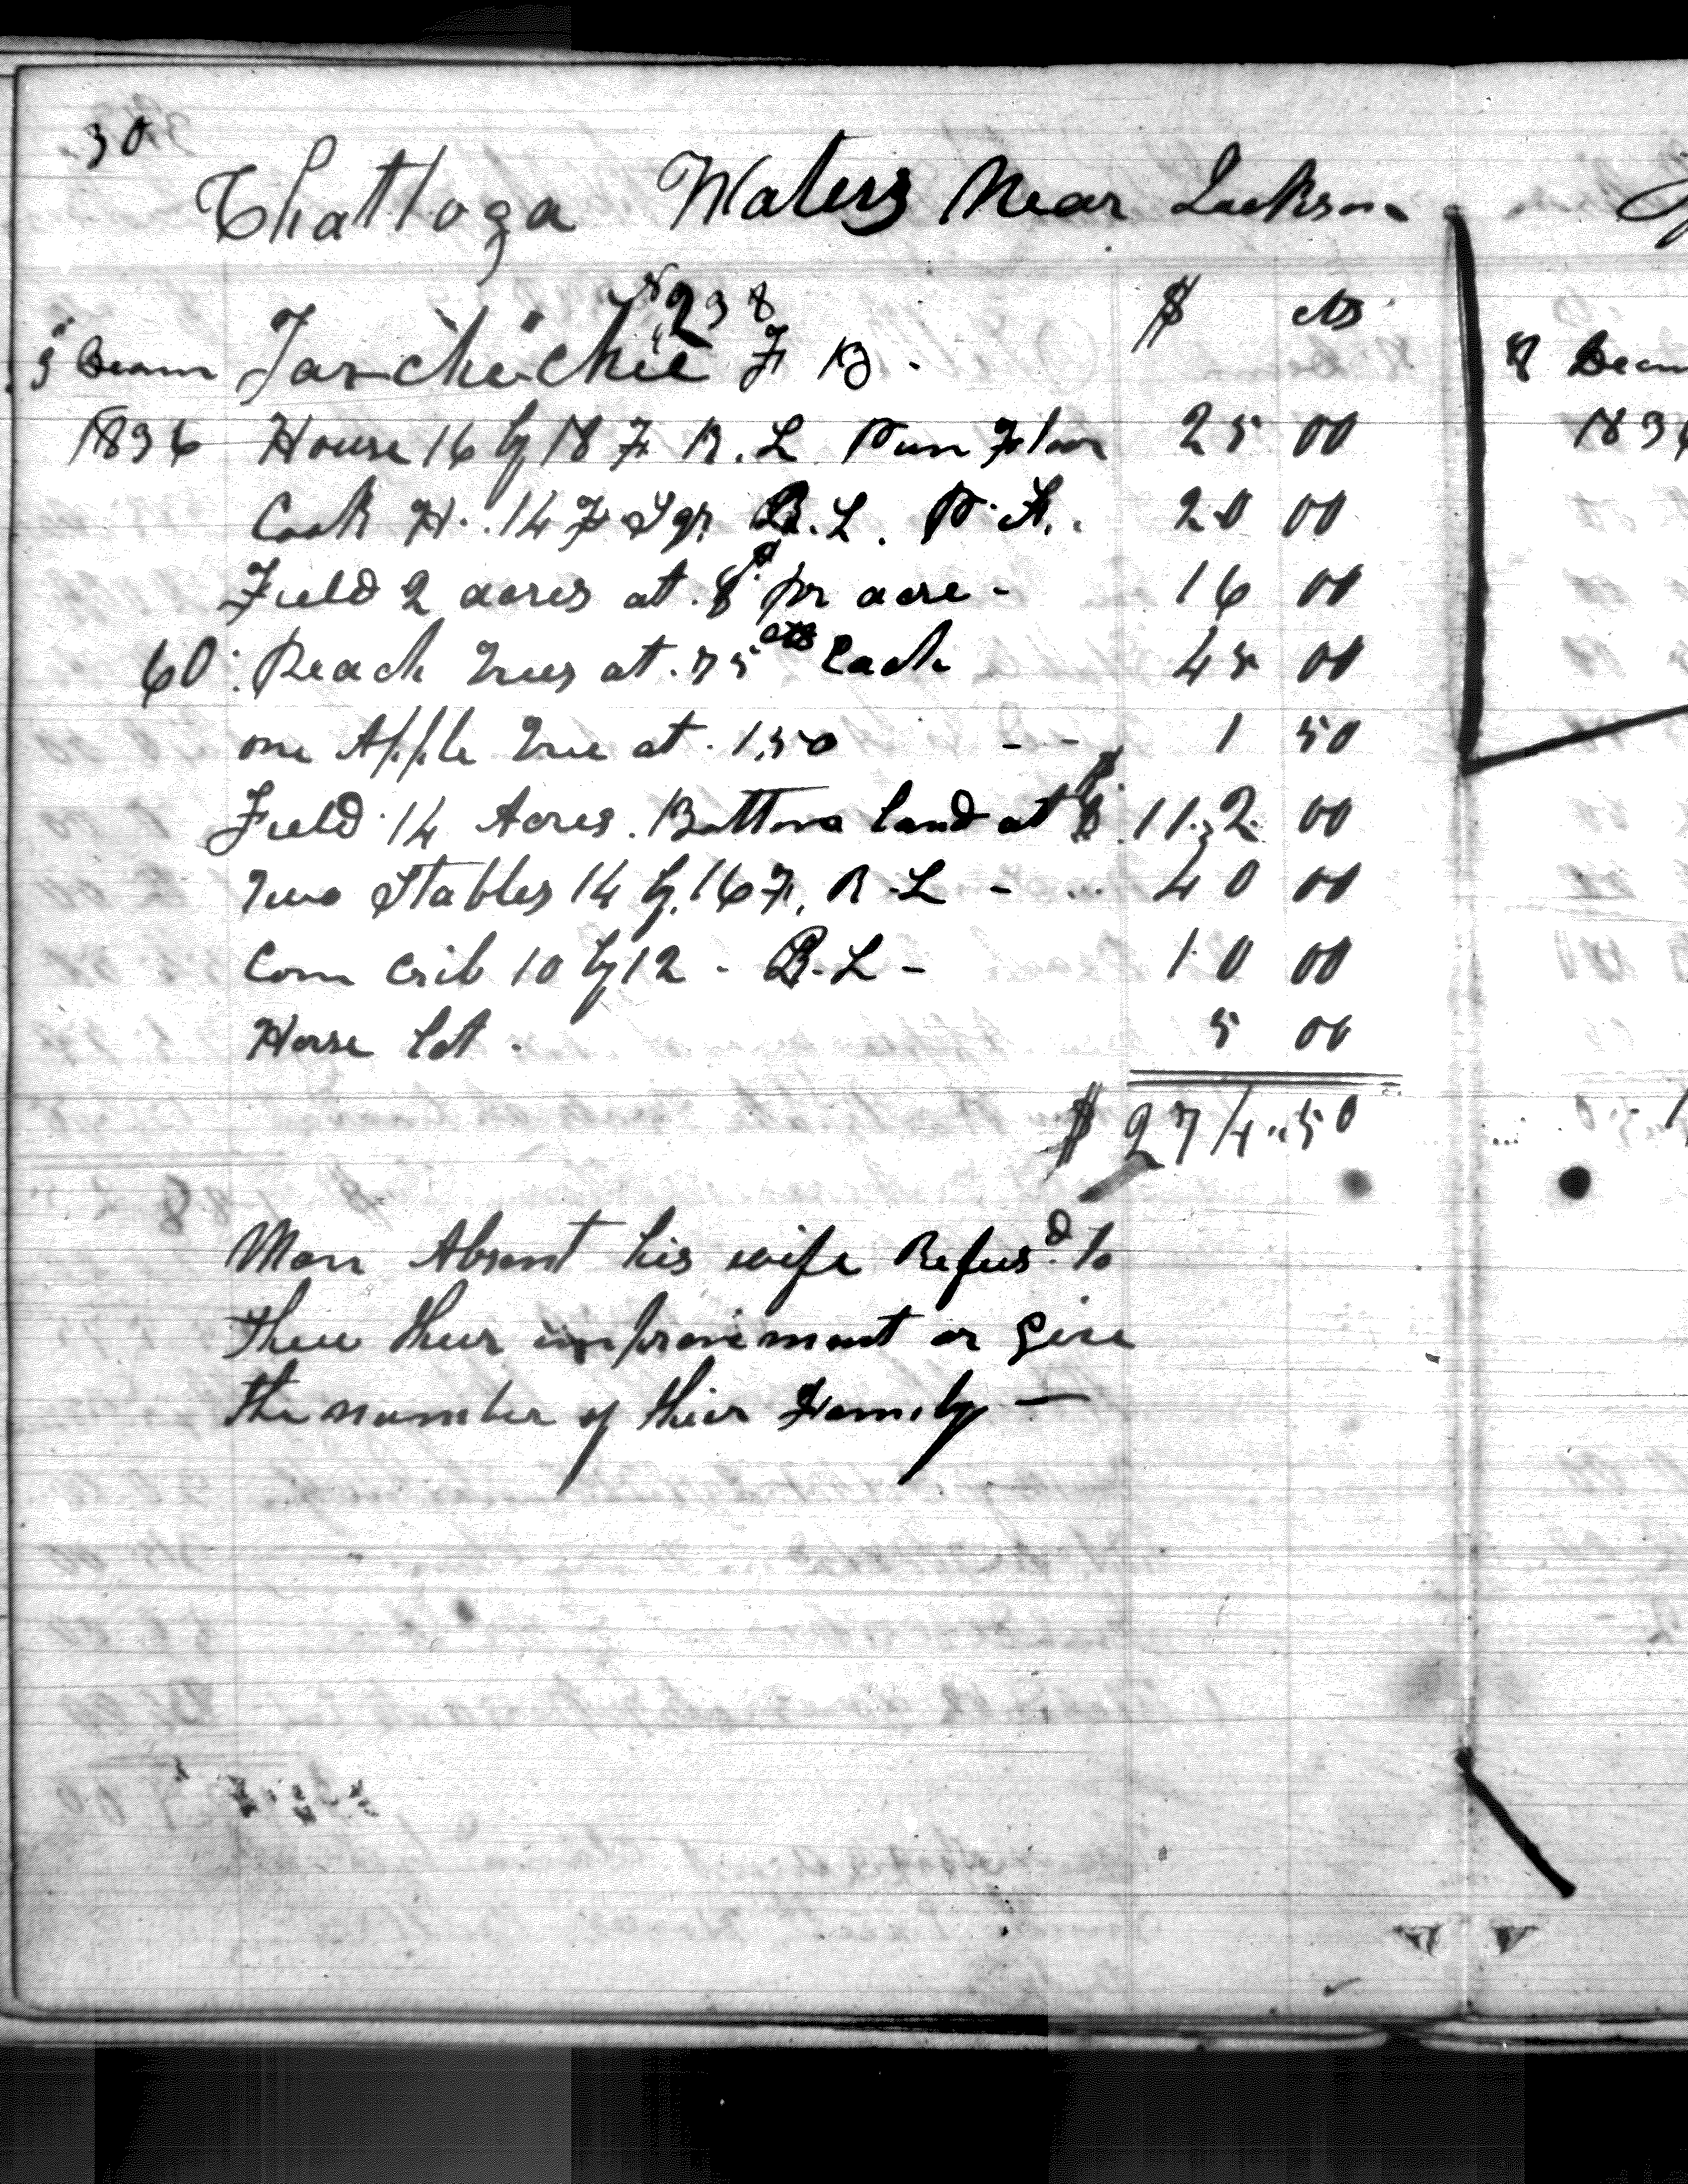 30
Chattoga Waters Near Jackson
No 238
$ cts
9 Decem Tar-che-chee F B.
1836 House 16 by 18 F R. L Pun Floor 25 00
Cook H. 14 F Sqr R. L. P. F. 20 00
Field 2 acres at 8$ pr acre - 16 00
60 Peach Trees at 75 cts Each 45 00
one Apple Tree at 1,50 - - 1 50
Field 14 Acres Bottom land at $8 112 00
Two Stables 14 by 16 F, R. L - 40 00
Corn Crib 10 by 12 - R. L - 10 00
Horse lot 5 00
$ 274.50
Man Absent his wife Refusd to
Shew their improvement or Give
the number of their Family —
Decem
183